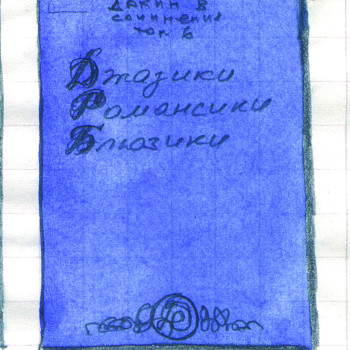 Дякин В
сочинения
том 6
Джазики
Романсики
Блюзики